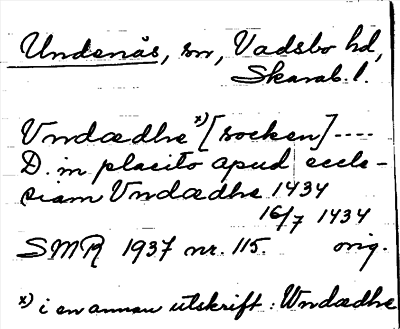 Undenäs, sn, Vadsbo hd,
Skarab. l.
Vndædhe *) [socken] ----
D. in placito apud eccle-
siam Vndædhe 1434
16/7 1434
SMR 1937 nr. 115. orig.
*) i en annan utskrift: Wndædhe